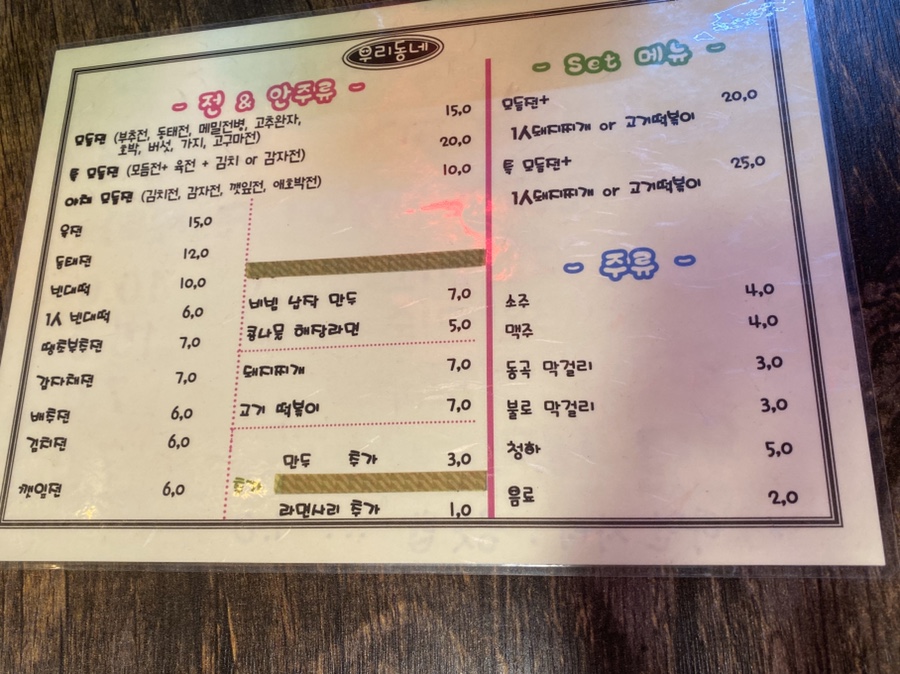 우리동네
- 전 & 안주류 -
모듬전 (부추전, 동태전, 메밀전병, 고추완자, 15,0
호박, 버섯, 가지, 고구마전)
특 모듬전 (모듬전+ 육전 + 김치 or 감자전) 20,0
야채 모듬전 (김치전, 감자전, 깻잎전, 애호박전) 10,0
육전 15,0
동태전 12,0
빈대떡 10,0
1人 빈대떡 6,0
땡초부추전 7,0
감자채전 7,0
배추전 6,0
김치전 6,0
깻잎전 6,0
비빔 납작 만두 7,0
콩나물 해장라면 5,0
돼지찌개 7,0
고기 떡볶이 7,0
만두 추가 3,0
추가
라면사리 추가 1,0
- Set 메뉴 -
모듬전+ 20,0
1人돼지찌개 or 고기떡볶이
특 모듬전+ 25,0
1人돼지찌개 or 고기떡볶이
- 주류 -
소주 4,0
맥주 4,0
동곡 막걸리 3,0
불로 막걸리 3,0
청하 5,0
음료 2,0